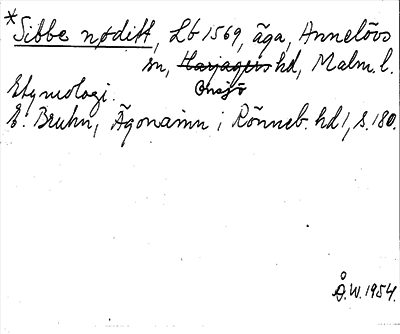 *Sibbe nøditt, Lb 1569, äga, Annelövs
sn, Harjagers hd, Malm. l.
Onsjö
Etymologi.
E. Bruhn, Ägonamn i Rönneb. hd 1, s. 180.
Å.W. 1954.